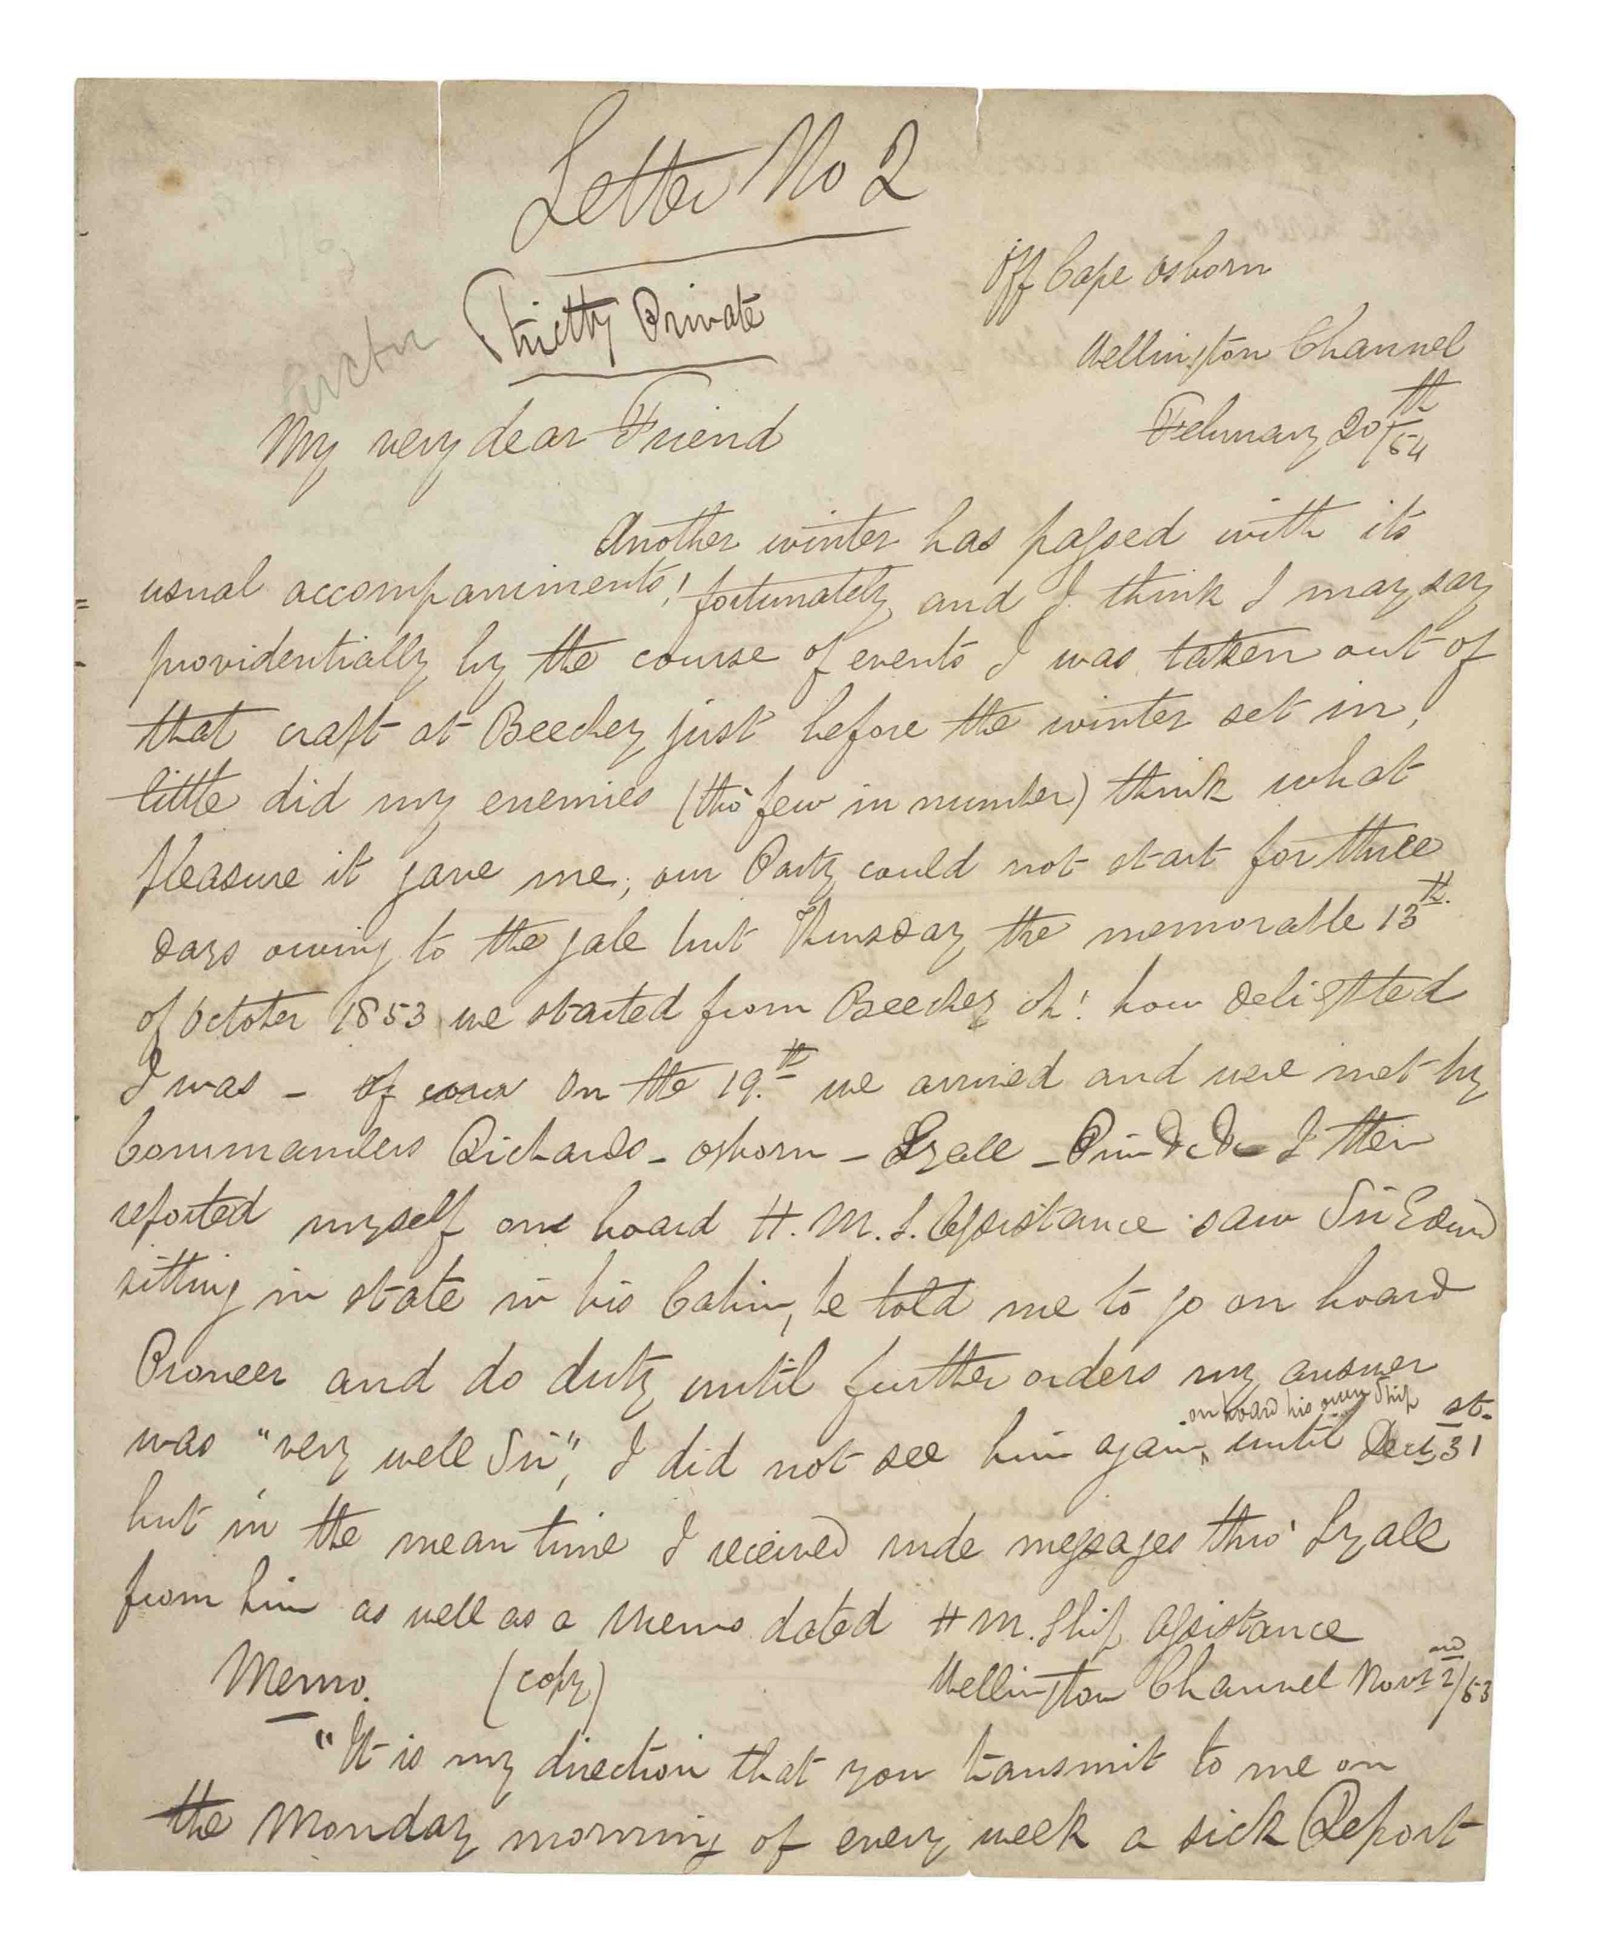 Letter No 2
Strictly Private
Off Cape Osborn
Wellington Channel
February 20th/54
My very dear Friend
Another winter has passed with its
usual accompaniments! fortunately and I think I may say
providentially by the course of events I was taken out of
that craft at Beechey just before the winter set in,
little did my enemies (tho' few in number) think what
pleasure it gave me, our Party could not start for three
days owing to the gale but Thursday the memorable 13th.
of October 1853 we started from Beechey oh! how delighted
I was - of on the 19.th we arrived and were met by
Commanders Richards - Osborn - Lyall - Pim &c &c I then
reported myself on board H. M. S. Assistance saw Sir Edwd
sitting in state in his Cabin, he told me to go on board
Pioneer and do duty until further orders my answer
was "very well Sir", I did not see him again, on board his own Ship until Decr 31st.
but in the mean time I received rude messages thro' Lyall
from him as well as a Memo dated H M. Ship Assistance
Memo. (copy) Wellington Channel Novr 22nd/53
"It is my direction that you transmit to me on
the Monday morning of every week a sick Report